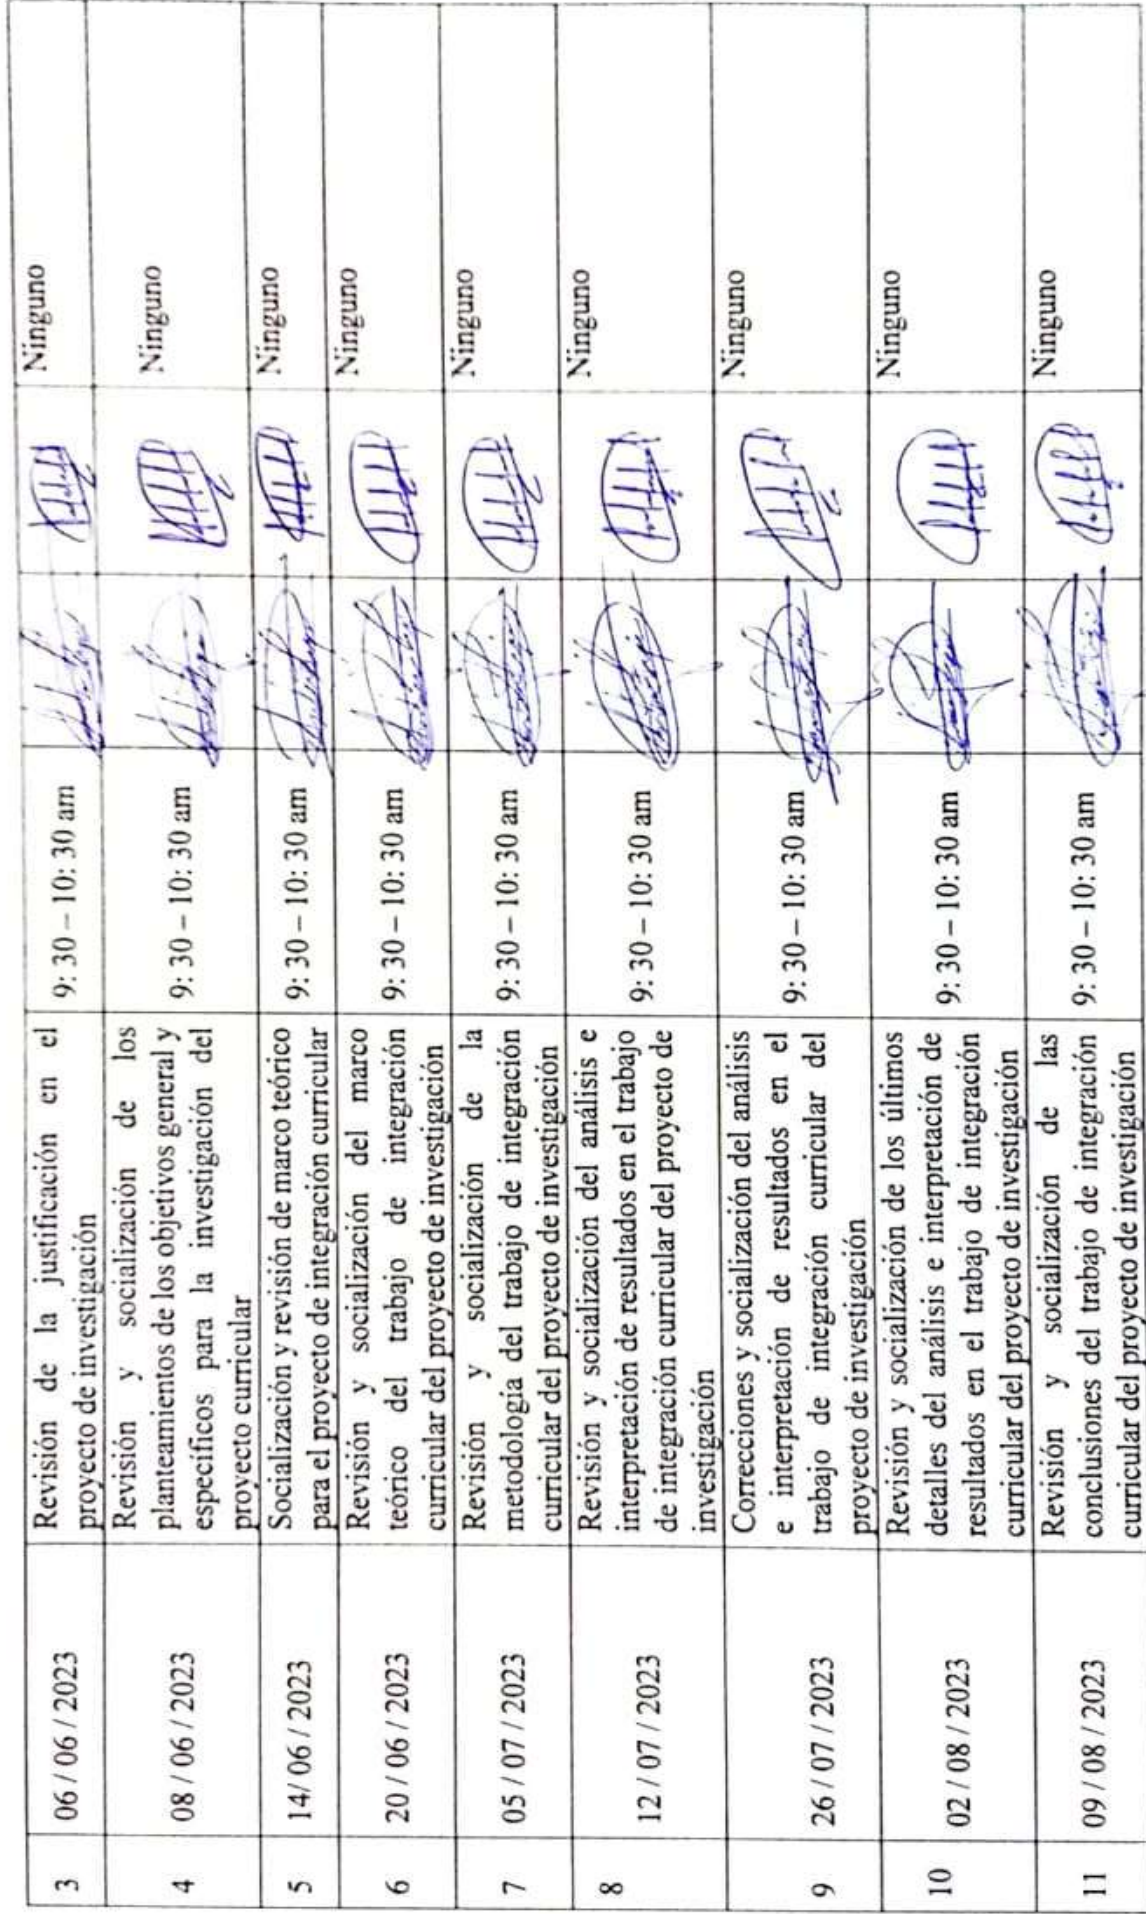 3
06 / 06 / 2023
Revisión de la justificación en el
proyecto de investigación
9: 30 – 10: 30 am
Ninguno
4
08 / 06 / 2023
Revisión y socialización de los
planteamientos de los objetivos general y
específicos para la investigación del
proyecto curricular
9: 30 – 10: 30 am
Ninguno
5
14/ 06 / 2023
Socialización y revisión de marco teórico
para el proyecto de integración curricular
9: 30 – 10: 30 am
Ninguno
6
20 / 06 / 2023
Revisión y socialización del marco
teórico del trabajo de integración
curricular del proyecto de investigación
9: 30 – 10: 30 am
Ninguno
7
05 / 07 / 2023
Revisión y socialización de la
metodología del trabajo de integración
curricular del proyecto de investigación
9: 30 – 10: 30 am
Ninguno
8
12 / 07 / 2023
Revisión y socialización del análisis e
interpretación de resultados en el trabajo
de integración curricular del proyecto de
investigación
9: 30 – 10: 30 am
Ninguno
9
26 / 07 / 2023
Correcciones y socialización del análisis
e interpretación de resultados en el
trabajo de integración curricular del
proyecto de investigación
9: 30 – 10: 30 am
Ninguno
10
02 / 08 / 2023
Revisión y socialización de los últimos
detalles del análisis e interpretación de
resultados en el trabajo de integración
curricular del proyecto de investigación
9: 30 – 10: 30 am
Ninguno
11
09 / 08 / 2023
Revisión y socialización de las
conclusiones del trabajo de integración
curricular del proyecto de investigación
9: 30 – 10: 30 am
Ninguno